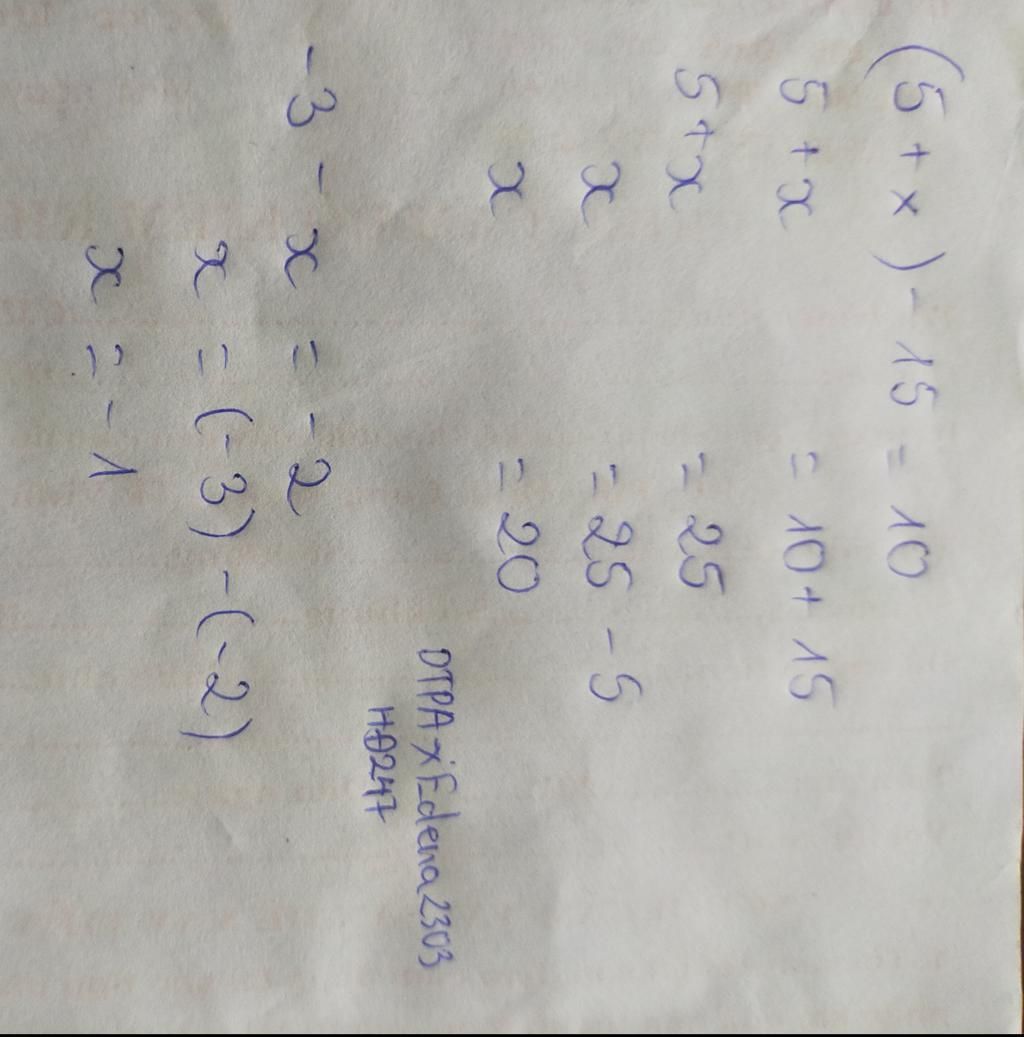 (5 + x) - 15 = 10
5 + x = 10 + 15
5 + x = 25
x = 25 - 5
x = 20
DTPAxEdena2303
HĐ247
-3 - x = -2
x = (-3) - (-2)
x = -1